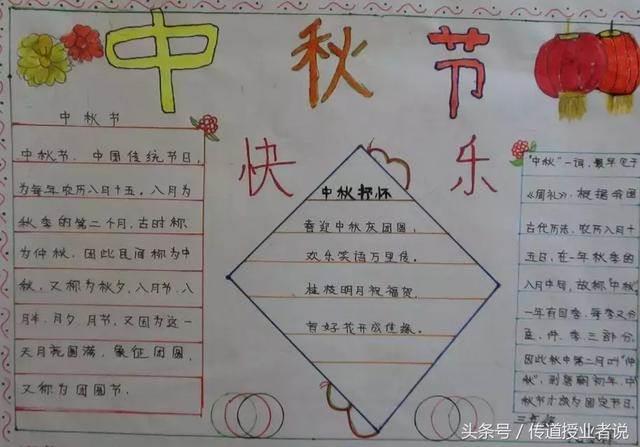 中秋节
快乐
中秋节
中秋节、中国传统节日,
为每年农历八月十五。八月为
秋季的第二个月,古时称
为仲秋,因此民间称为中
秋,又称为秋夕、八月节、八
月半、月夕、月节,又因为这一
天月亮圆满,象征团圆,
又称为团圆节。
中秋抒怀
喜迎中秋庆团圆,
欢乐笑语万里传。
桂枝明月祝福贺,
智好花开成佳缘。
"中秋"一词,最早见于
《周礼》。根据我国
古代历法,农历八月十
五日,在一年秋季的
八月中旬,故称"中秋"
一年有四季,每季又分
孟、仲、季、三部分,
因此秋中第二月叫"仲
秋",到唐朝初年,中
秋节才成为固定节日
头条号/传道授业者说